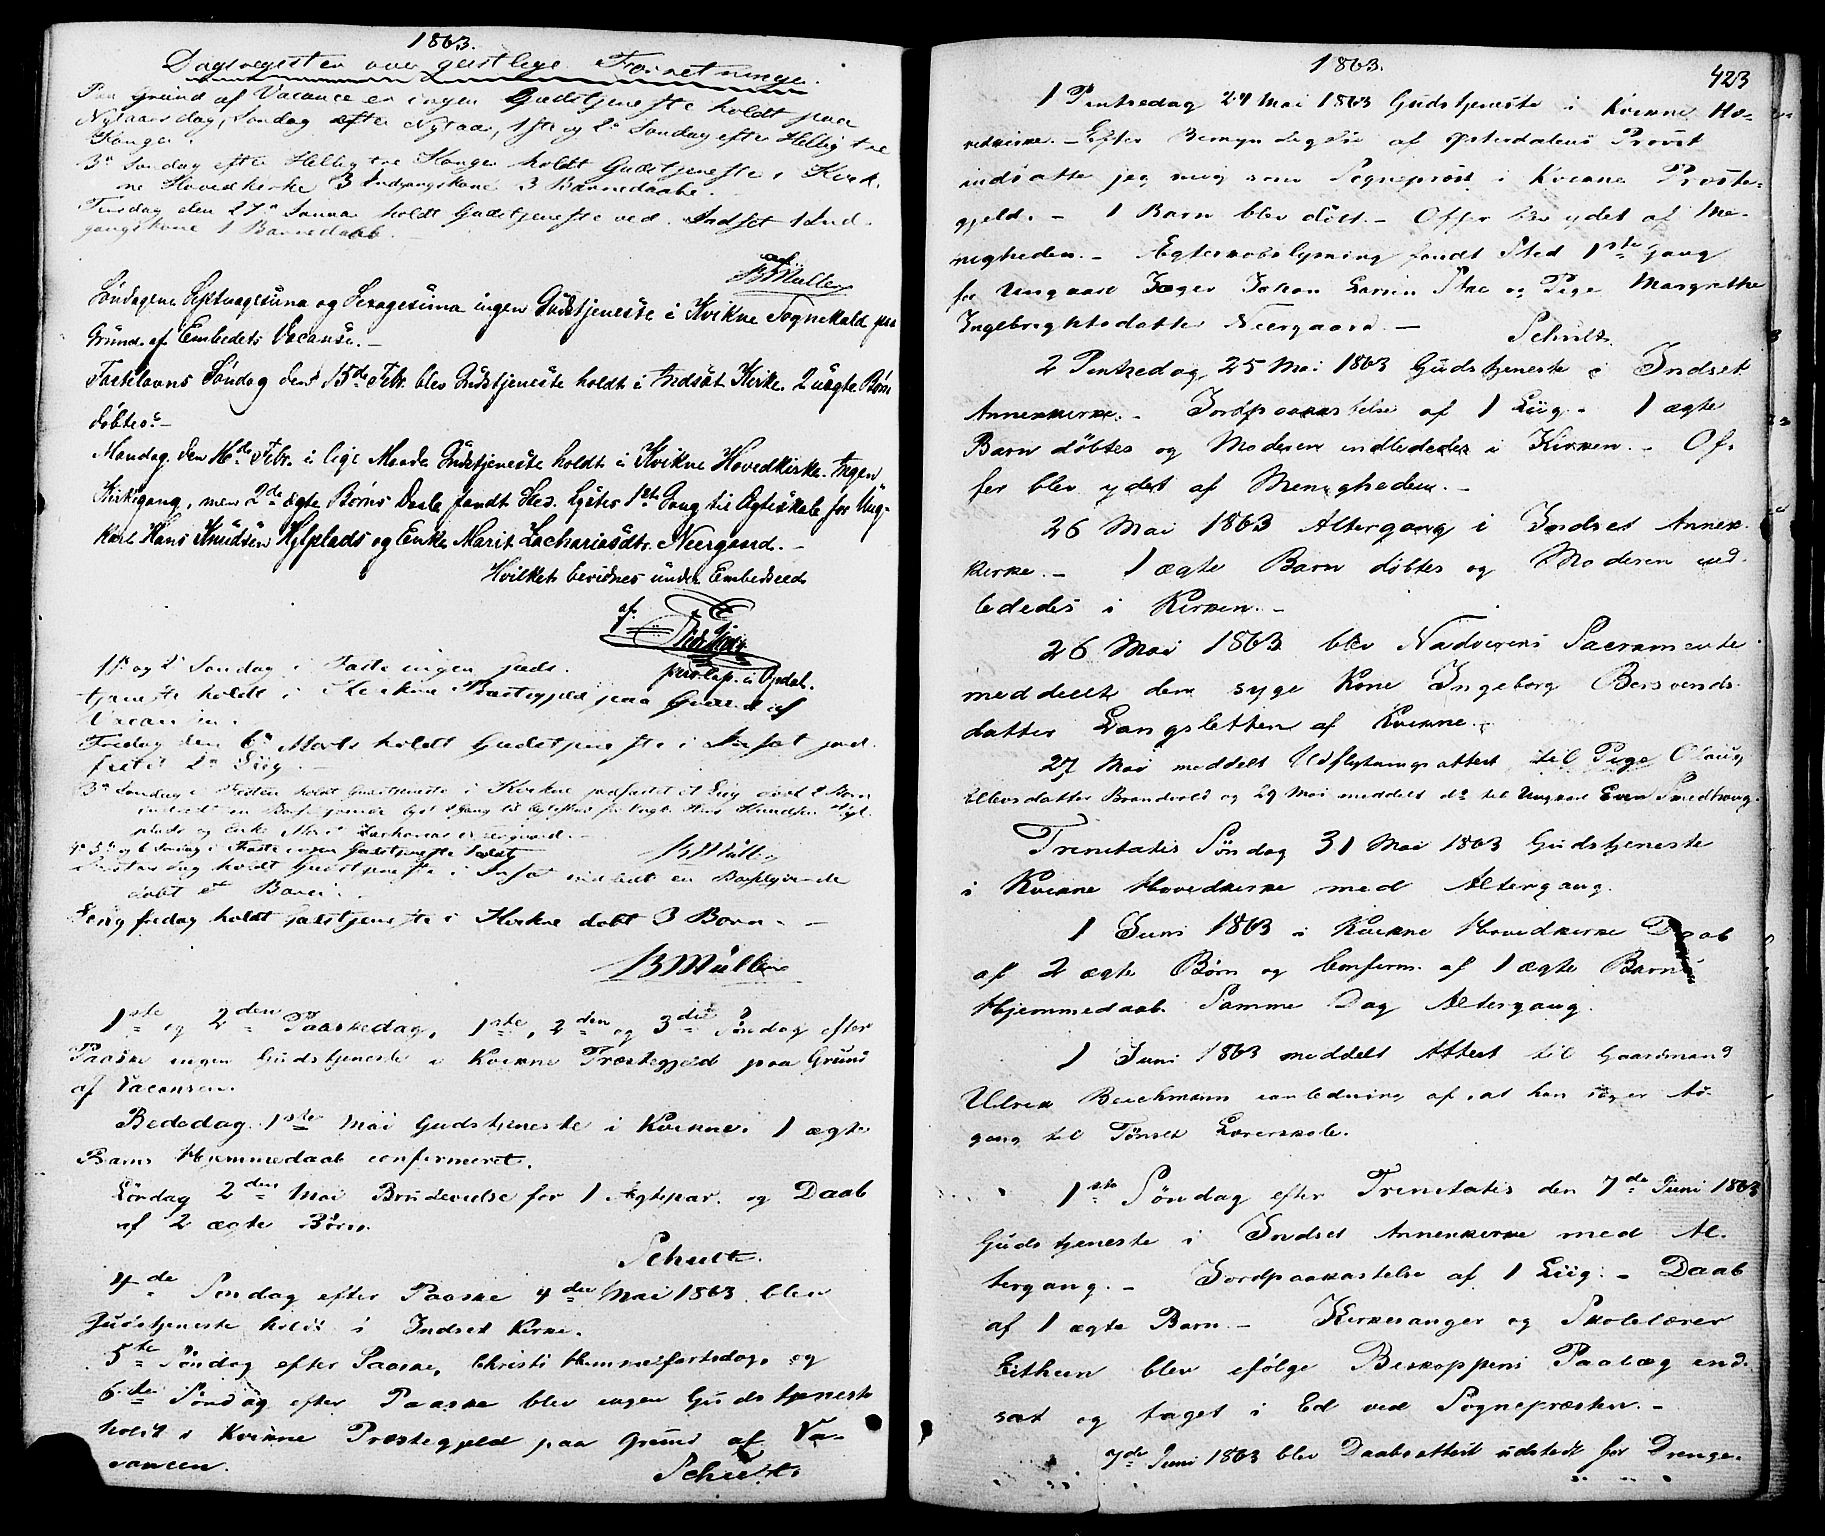 1863.
Dagsregister over geistlige Forretninger.
Paa Grund af Vacance er ingen Gudstjeneste holdt paa
Nytaarsdag, Søndag efter Nytaar, 1ste og 2n Søndag efter Hellig tre
Konger.
3n Søndag efter Hellig tre Konger holdt Gudstjeneste i Kvik-
ne Hovedkirke 3 Indgangskone 3 Barnedaabe.
Tirsdag den 27n Januar holdt Gudstjeneste ved Indset 1 Ind-
gangskone 1 Barnedaab.
af
BMüller
Søndagene Septuagesima og Sexagesima ingen Gudstjeneste i Kvikne Sognekald paa
Grund af Embedets Vacanse. -
Fastelavns Søndag den 15de Febr. blev Gudstjeneste holdt i Indsæt Kirke. 2 uægte Børn
døbtes. -
Mandag den 16de Febr. i lige Maade Gudstjeneste holdt i Kvikne Hovedkirke. Ingen
Kirkegang, men 2de ægte Børns Daab fandt Sted. Lystes 1ste Gang til Ægteskab for Ung-
karl Hans Knudsen Hylplads og Enke Marit Zachariasdtr. Neergaard. -
Hvilket bevidnes under Embedseed
af
pers. Cap. i Opdal.
1n og 2n Søndag i Faste ingen Guds-
tjeneste holdt i Kvikne Præstegjeld paa Grund af
Vacansen.
Fredag den 6n Marts holdt Gudstjeneste i Insæt jord-
festet 2n Liig. -
3n Søndag i Fasten holdt Gudstjeneste i Kvikne jordfæstet et Liig døbt 2 Børn
indledt en Barselqvinde lyst 2 Gang til Ægteskab for Ungk. Hans Knudsen Hyl-
plads og Enke Marit Zachariasd. Neergaard. -
4n 5n og 6 Søndag i Faste ingen Gudstjeneste holdt
BMüller
holdt Gudstjeneste i Insæt indledt en Barselqvinde
døbt et Barn.
Langfredag holdt Gudstjeneste i Kvikne døbt 3 Børn. -
BMüller
1ste og 2den Paaskedag, 1ste, 2den og 3die Søndag efter
Paaske ingen Gudstjeneste i Kvikne Præstegjeld paa Grund
af Vacansen.
Bededag 1ste Mai Gudstjeneste i Kvikne. 1 ægte
Barns Hjemmedaab confirmeret.
Lørdag 2den Mai Brudevielse for 1 Ægtepar. og Daab
af 2 ægte Børn.
Schultz.
4de Søndag efter Paaske 4den Mai 1863 blev
Gudstjeneste holdt i Indset Kirke.
5te Søndag efter Paaske, Christi Himmelfartsdag, og
6te Søndag efter Paaske blev ingen Gudstjeneste
holdt i Kvikne Præstegjeld paa Grund af Va-
cancen.
Schultz.
1863.
423
1 Pintsedag 24 Mai 1863 Gudstjeneste i Kvikne Ho-
vedkirke. - Efter Bemyndigelse af Østerdalens Provst
indsatte jeg mig som Sognepræst i Kvikne Præste-
gjeld. - 1 Barn blev døbt. - Offer blev ydet af Me-
nigheden. - Ægteskabslysning fandt Sted 1ste Gang
for Ungkarl Jæger Johan Larsen Stai og Pige Margrethe
Ingebrigtsdatter Neergaard. -
Schultz
2 Pintsedag 25 Mai 1863 Gudstjeneste i Indset
Annexkirke. - Jordpaakastelse af 1 Liig. - 1 ægte
Barn døbtes og Moderen indlededes i Kirken. - Of-
fer blev ydet af Menigheden. -
26 Mai 1863 Altergang i Indset Annex-
kirke. - 1 ægte Barn døbtes og Moderen ind-
lededes i Kirken. -
26 Mai 1863 blev Nadverens Sacramente
meddeelt den syge Kone Ingeborg Bersvends-
datter Langsletten af Kvikne. -
27 Mai meddelt Udflytningsattest til Pige Olaug
Ellevsdatter Brandvold og 29 Mai meddelt do til Ungkarl Even Smedhaug.
Trinitatis Søndag 31 Mai 1863 Gudstjeneste
i Kvikne Hovedkirke med Altergang.
1 Juni 1863 i Kvikne Hovedkirke Daab
af 2 ægte Børn og Confirm. af 1 ægte Barns
Hjemmedaab. Samme Dag Altergang.
1 Juni 1863 meddelt Attest til Gaardmand
Ulrik Beichmann i anledning af, at han søger Ad-
gang til Tønset Lærerskole.
1ste Søndag efter Trinitatis den 7de Juni 1863
Gudstjeneste i Indset Annexkirke med Al-
tergang. - Jordpaakastelse af 1 Liig. - Daab
af 1 ægte Barn. - Kirkesanger og Skolelærer
Eithun blev ifølge Biskoppens Paalæg ind-
sat og taget i Ed ved Sognepræsten. -
7de Juni 1863 blev Daabsattest udstedt for Drenge-